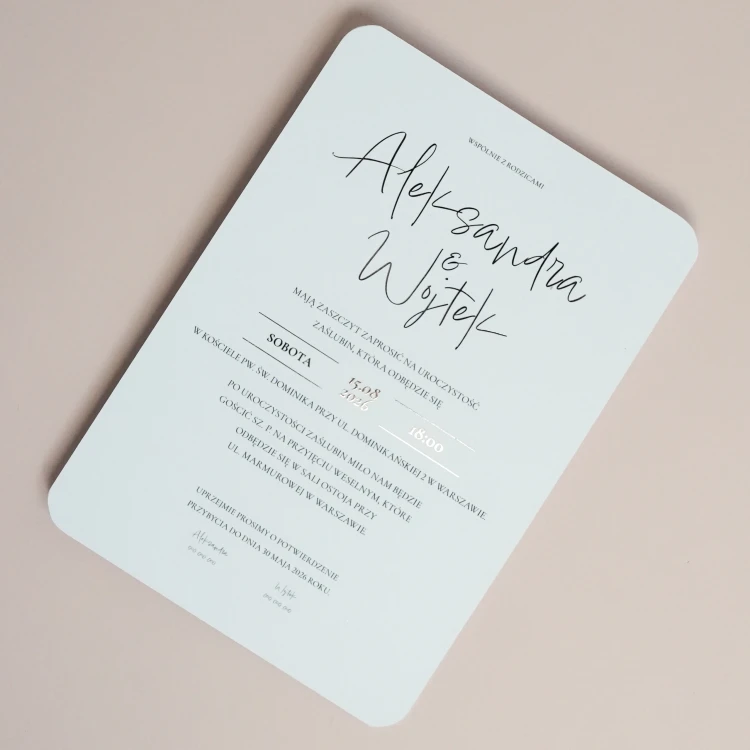 WSPÓLNIE Z RODZICAMI
Aleksandra
&
Wojtek
MAJĄ ZASZCZYT ZAPROSIĆ NA UROCZYSTOŚĆ
ZAŚLUBIN, KTÓRA ODBĘDZIE SIĘ
SOBOTA
15.08
2026
18:00
W KOŚCIELE PW. ŚW. DOMINIKA PRZY UL. DOMINIKAŃSKIEJ 2 W WARSZAWIE.
PO UROCZYSTOŚCI ZAŚLUBIN MIŁO NAM BĘDZIE
GOŚCIĆ SZ. P. NA PRZYJĘCIU WESELNYM, KTÓRE
ODBĘDZIE SIĘ W SALI OSTOJA PRZY
UL. MARMUROWEJ W WARSZAWIE.
UPRZEJMIE PROSIMY O POTWIERDZENIE
PRZYBYCIA DO DNIA 30 MAJA 2026 ROKU.
Aleksandra
000 000 000
Wojtek
000 000 000